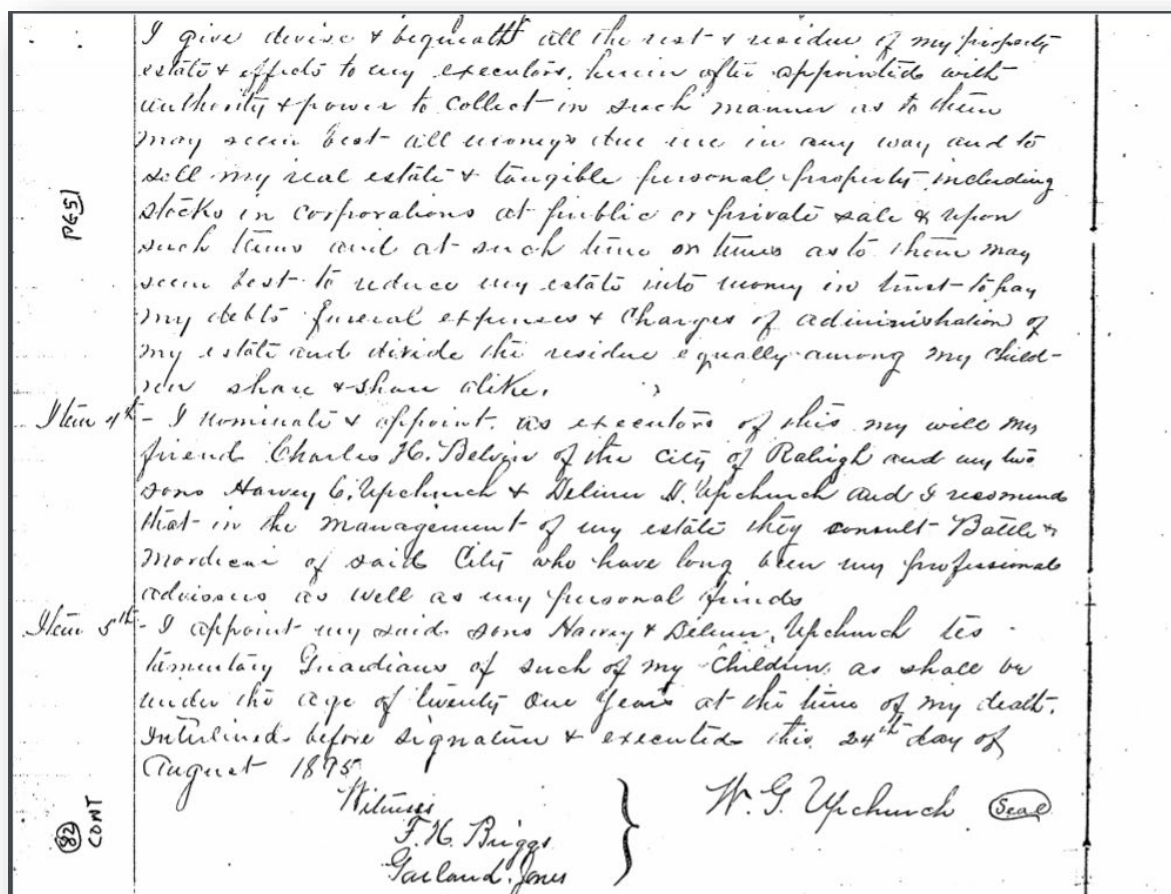 I give devise & bequeath all the rest & residue of my property
estate & effects to my executors, herein after appointed with
authority & power to collect in such manner as to them
may seem best all moneys due me in any way and to
sell my real estate & tangible personal property including
stocks in corporations at public or private sale & upon
such terms and at such time or times as to them may
seem best to reduce my estate into money in trust to pay
my debts funeral expenses & charges of administration of
my estate and divide the residue equally among my child-
ren share & share alike.
Item 4th - I nominate & appoint as executors of this my will my
friend Charles H. Belvin of the City of Raleigh and my two
sons Harvey C. Upchurch & D. Upchurch and I recommend
that in the management of my estate they consult Battle &
Mordecai of said City who have long been my professional
advisors as well as my personal friends
Item 5th - I appoint my said sons Harvey & Upchurch tes-
tamentary Guardians of such of my Children as shall be
under the age of twenty one years at the time of my death.
Interlined before signature & executed this 24th day of
August 1895
Witness
F. H. Briggs
Garland Jones
W. G. Upchurch Seal
PG 51
82 CONT